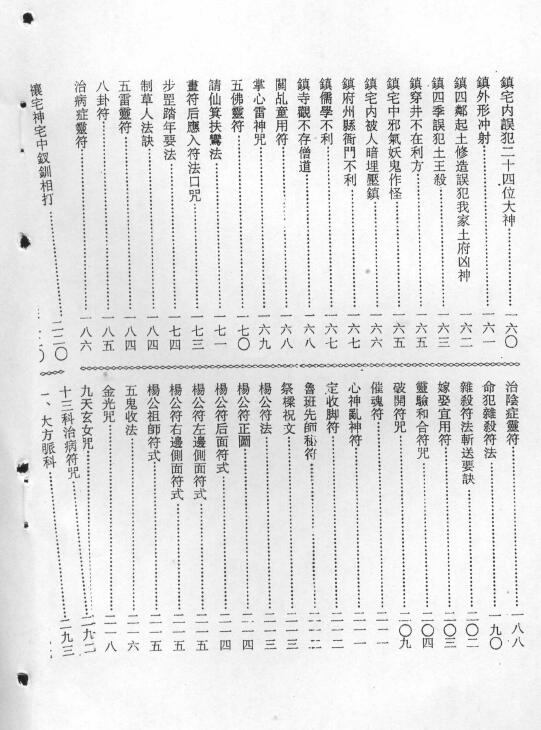 鎮宅内誤犯二十四位大神………一六〇
鎮外形冲射………一六一
鎮四鄰起土修造誤犯我家土府凶神………一六二
鎮四季誤犯土王殺………一六三
鎮穿井不在利方………一六五
鎮宅中邪氣妖鬼作怪………一六五
鎮宅内被人暗埋壓鎮………一六六
鎮府州縣衙門不利………一六七
鎮儒學不利………一六七
鎮寺觀不存僧道………一六八
關乩童用符………一六八
掌心雷神咒………一六九
五佛靈符………一七〇
請仙箕扶鸞法………一七一
畫符后應入符法口咒………一七三
步罡踏年要法………一七四
制草人法訣………一八四
五雷靈符………一八四
八卦符………一八五
治病症靈符………一八六
禳宅神宅中釵釧相打………二二〇
治陰症靈符………一八八
命犯雜殺符法………一九〇
雜殺符法斬送要訣………二〇二
嫁娶宜用符………二〇三
靈驗和合符咒………二〇四
破開符咒………二〇九
催魂符………二一一
心神亂神符………二一一
定收脚符………二一二
魯班先師秘符………
祭樑祝文………二一三
楊公符法………二一三
楊公符正圖………二一四
楊公符后面符式………二一四
楊公符左邊側面符式………二一五
楊公符右邊側面符式………二一五
楊公祖師符式………二一五
五鬼收法………二一六
金光咒………二一八
九天玄女咒………二九二
十三科治病符咒………二九三
一、大方脈科